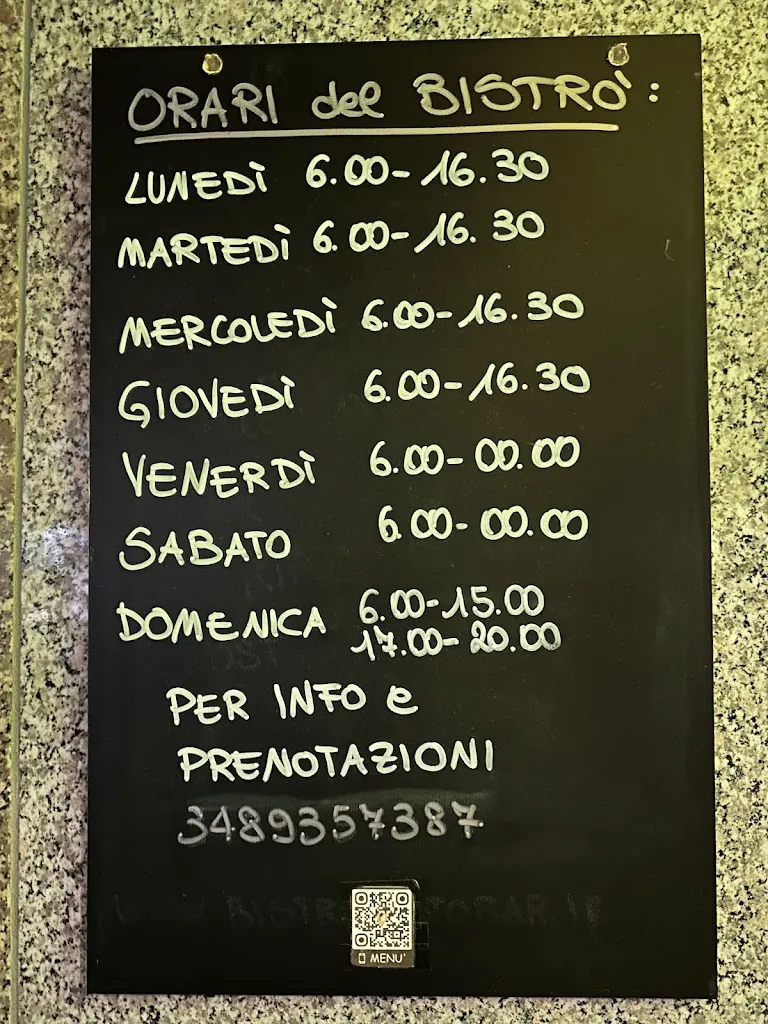 ORARI del BISTRO':
LUNEDÌ 6.00-16.30
MARTEDÌ 6.00-16.30
MERCOLEDÌ 6.00-16.30
GIOVEDÌ 6.00-16.30
VENERDÌ 6.00-00.00
SABATO 6.00-00.00
DOMENICA 6.00-15.00
17.00-20.00
PER INFO e
PRENOTAZIONI
3489357387
MENU'